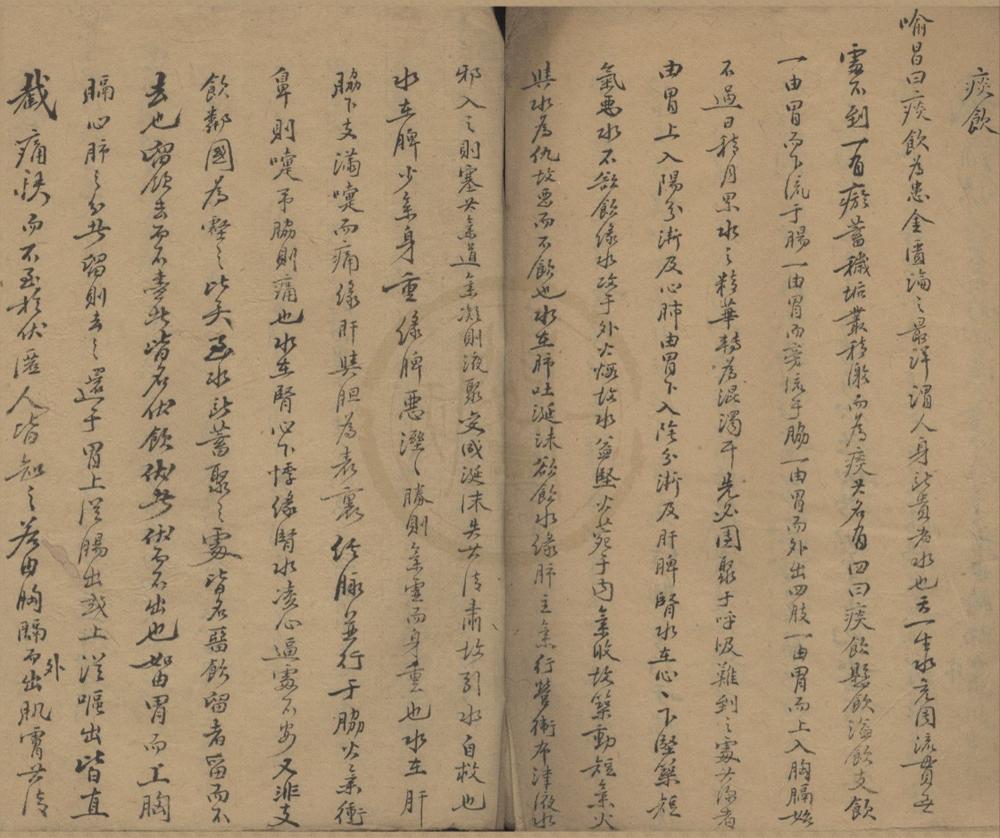 痰飲
喻昌曰痰飲為患金匱論之最詳謂人身所貴者水也天一生水充周流貫無
處不到一有瘀蓄穢垢叢積漸而為痰其名有四曰痰飲懸飲溢飲支飲
一由胃而下流于腸一由胃而旁流于脇一由胃而外出四肢一由胃而上入胸膈始
不過日積月累水之精華轉為混濁于是必團聚于呼吸難到之處其深者
由胃上入陽分漸及心肺由胃下入陰分漸及肝脾腎水在心心下堅築短
氣惡水不欲飲緣水攻于外火熾故水益堅火菀于內氣收故築動短氣火
與水為仇故惡而不飲也水在肺吐涎沫欲飲水緣肺主氣行營衛布津液水
邪入之則塞其氣道氣凝則液聚变成涎沫失其清肅故引水自救也
水在脾少氣身重緣脾惡溼溼勝則氣虛而身重也水在肝
脇下支滿嚏而痛緣肝與胆為表裏經脉並行于脇火氣衝
鼻則嚏吊脇則痛也水在腎心下悸緣腎水凌心逼處不安又非支
飲鄰國為壑之比矣至水所蓄聚之處皆名留飲留者留而不
去也留飲去而不盡者皆名伏飲伏者伏而不出也如由胃而上胸
膈心肺之分者留則去之還于胃上從腸出或上從嘔出皆直
截痛快而不至於伏匿人皆知之若由胸膈而外出肌膚其清